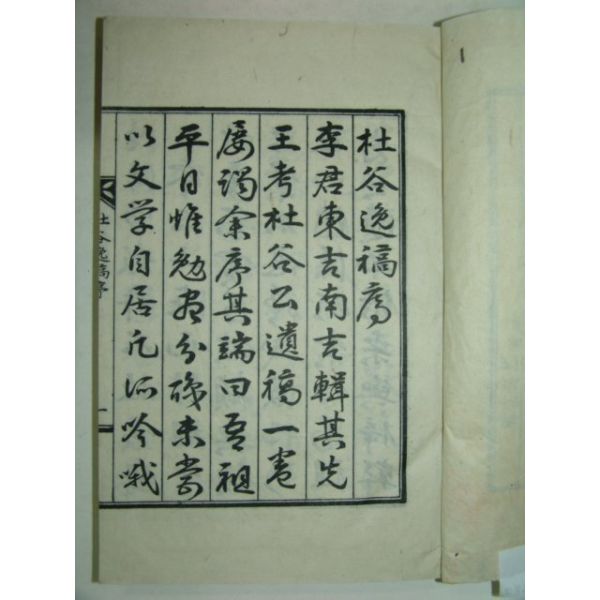 杜谷逸稿序
李君東吉南吉輯其先
王考杜谷公遺稿一卷
屢謁余序其端曰吾祖
平日惟勉盡分職未嘗
以文学自居凡所吟哦
杜谷逸稿序
一
1